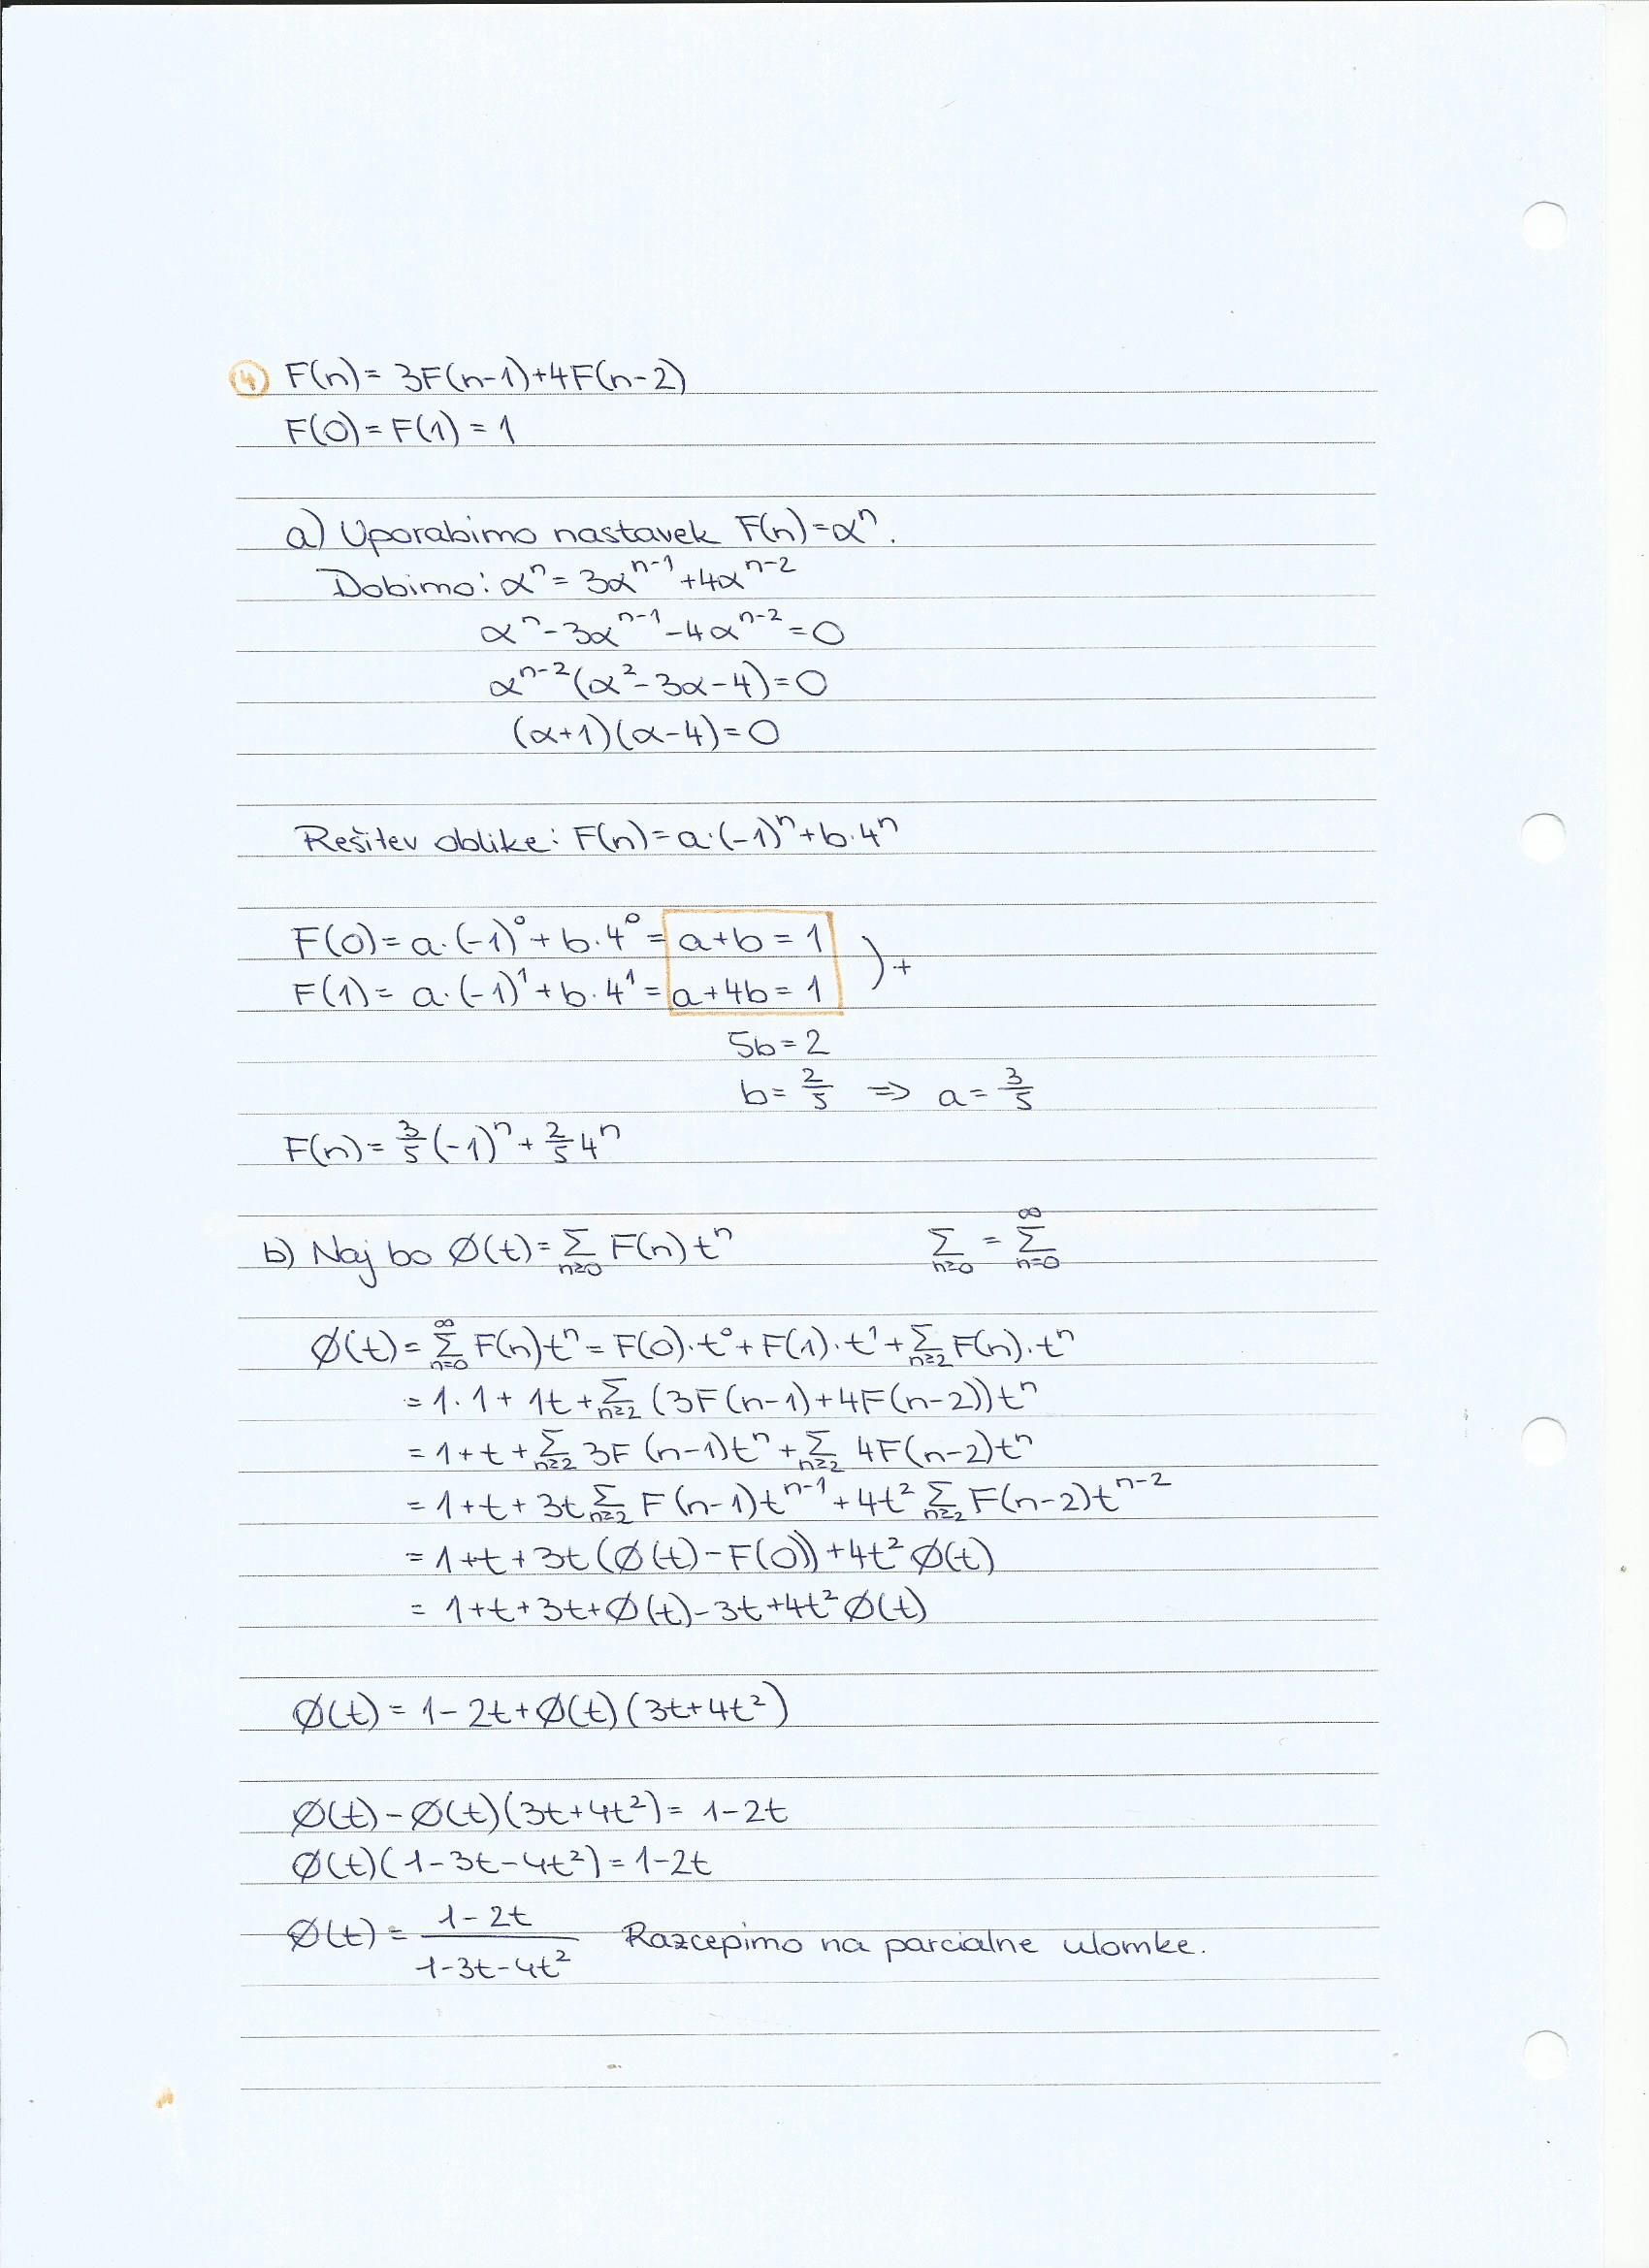 ④ F(n) = 3F(n-1)+4F(n-2)
F(0) = F(1) = 1
a) Uporabimo nastavek F(n)=αⁿ.
Dobimo: αⁿ = 3αⁿ⁻¹ + 4αⁿ⁻²
αⁿ - 3αⁿ⁻¹ - 4αⁿ⁻² = 0
αⁿ⁻²(α² - 3α - 4) = 0
(α+1)(α-4) = 0
Rešitev oblike: F(n) = a·(-1)ⁿ + b·4ⁿ
F(0) = a·(-1)⁰ + b·4⁰ = a+b = 1
F(1) = a·(-1)¹ + b·4¹ = a+4b = 1 ) +
5b = 2
b = 2/5 ⇒ a = 3/5
F(n) = 3/5 (-1)ⁿ + 2/5 4ⁿ
b) Naj bo Ø(t) = Σ_{n≥0} F(n) tⁿ Σ_{n≥0} = Σ_{n=0}^{∞}
Ø(t) = Σ_{n=0}^{∞} F(n)tⁿ = F(0)·t⁰ + F(1)·t¹ + Σ_{n≥2} F(n)·tⁿ
= 1·1 + 1t + Σ_{n≥2} (3F(n-1)+4F(n-2))tⁿ
= 1+t + Σ_{n≥2} 3F(n-1)tⁿ + Σ_{n≥2} 4F(n-2)tⁿ
= 1+t + 3t Σ_{n≥2} F(n-1)tⁿ⁻¹ + 4t² Σ_{n≥2} F(n-2)tⁿ⁻²
= 1+t+3t(Ø(t)-F(0))+4t² Ø(t)
= 1+t+3t+Ø(t)-3t+4t² Ø(t)
Ø(t) = 1-2t+Ø(t)(3t+4t²)
Ø(t)-Ø(t)(3t+4t²) = 1-2t
Ø(t)(1-3t-4t²) = 1-2t
Ø(t) = (1-2t)/(1-3t-4t²) Razcepimo na parcialne ulomke.